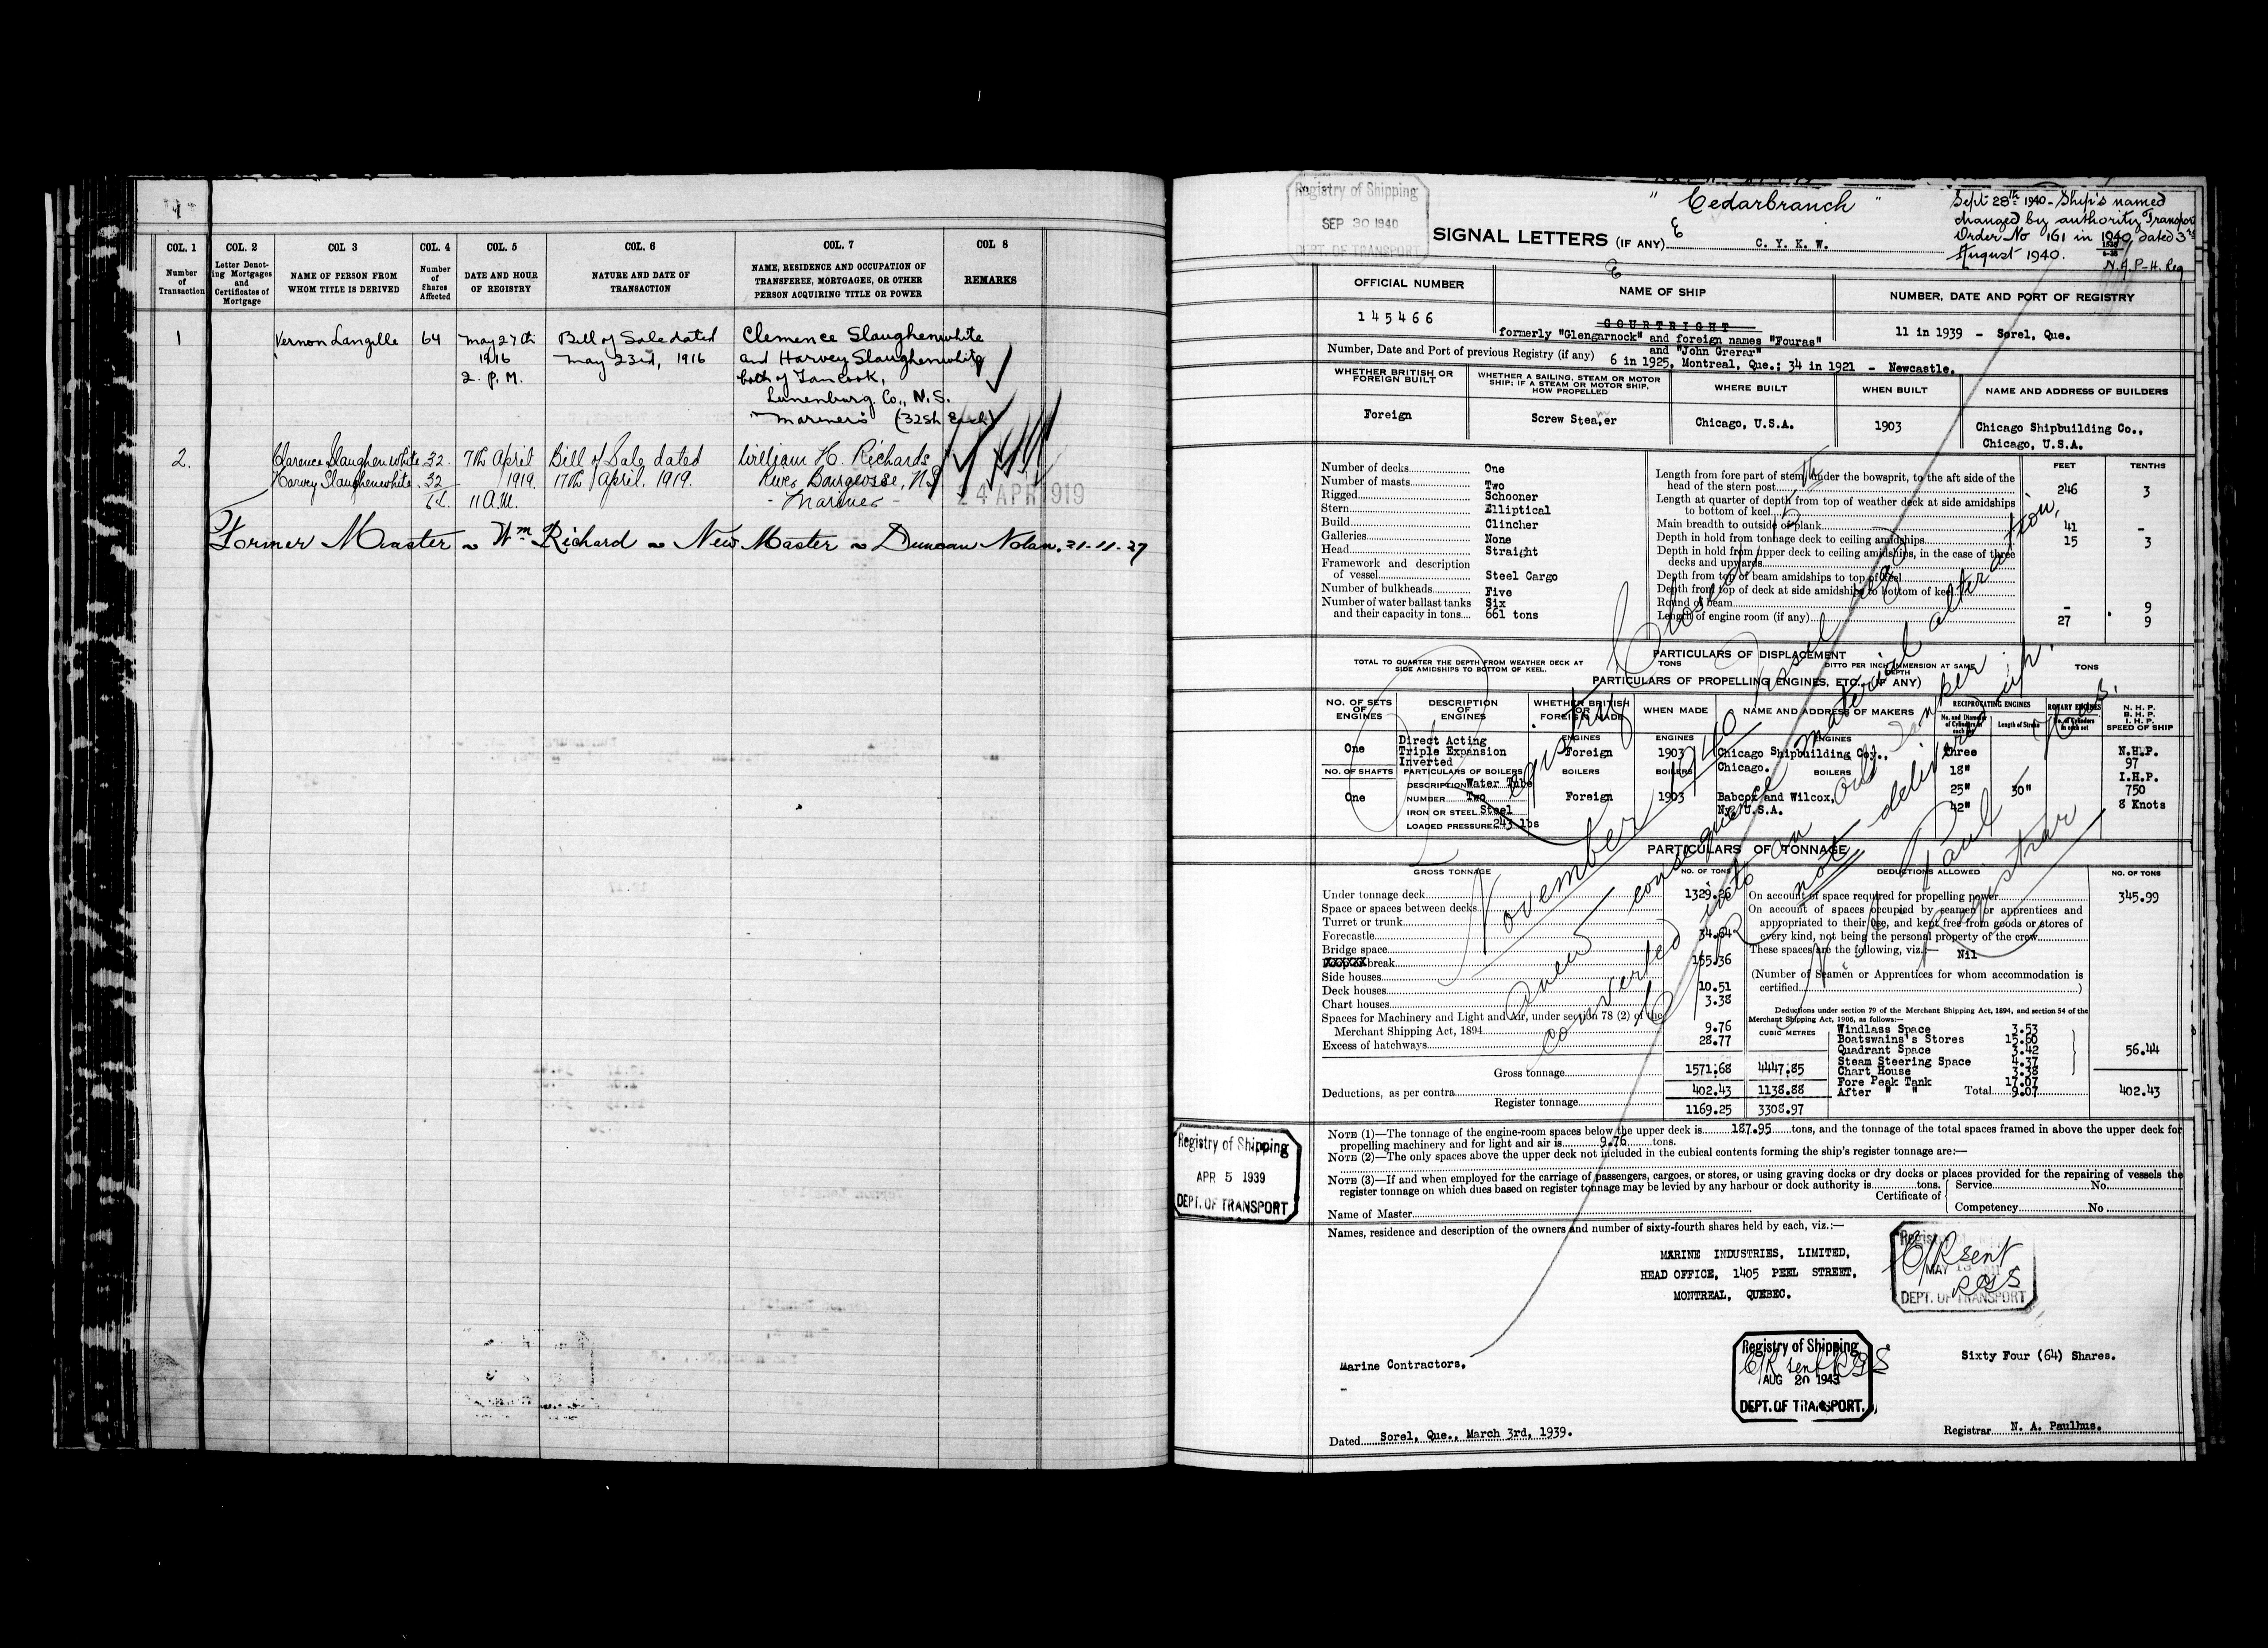 COL. 1
Number
of
Transaction
COL. 2
Letter Denot-
ing Mortgages
and
Certificates of
Mortgage
COL. 3
NAME OF PERSON FROM
WHOM TITLE IS DERIVED
COL. 4
Number
of
Shares
Affected
COL. 5
DATE AND HOUR
OF REGISTRY
COL. 6
NATURE AND DATE OF
TRANSACTION
COL. 7
NAME, RESIDENCE AND OCCUPATION OF
TRANSFEREE, MORTGAGEE, OR OTHER
PERSON ACQUIRING TITLE OR POWER
COL 8
REMARKS
1
Vernon Langille
64
May 27th
1916
2. P.M.
Bill of Sale dated
May 23rd, 1916
Clemence Slaughenwhite
and Harvey Slaughenwhite
both of Tancook,
Lunenburg Co., N.S.
Mariners (32sh Each)
2.
Clarence Slaughenwhite 32.
Harvey Slaughenwhite. 32
64.
7th April
1919.
11 A.M.
Bill of Sale dated
17th April. 1919.
William H. Richards
River Bourgeosse, N.S
- Mariner -
24 APR 1919
Former Master ~ Wm Richard ~ New Master ~ Duncan Nolan. 21-11-27
Registry of Shipping
SEP 30 1940
DEPT. OF TRANSPORT
" Cedarbranch "
Sept 28th 1940 - Ship's named
changed by authority Transport
Order No 161 in 1940, dated 3rd
August 1940.
N.A.P-H. Reg
SIGNAL LETTERS (IF ANY) C. Y. K. W.
OFFICIAL NUMBER
145466
NAME OF SHIP
COURTRIGHT
formerly "Glengarnock" and foreign names "Fouras"
and "John Grerar"
NUMBER, DATE AND PORT OF REGISTRY
11 in 1939 - Sorel, Que.
Number, Date and Port of previous Registry (if any) 6 in 1925, Montreal, Que.; 34 in 1921 - Newcastle.
WHETHER BRITISH OR
FOREIGN BUILT
Foreign
WHETHER A SAILING, STEAM OR MOTOR
SHIP; IF A STEAM OR MOTOR SHIP,
HOW PROPELLED
Screw Steamer
WHERE BUILT
Chicago, U.S.A.
WHEN BUILT
1903
NAME AND ADDRESS OF BUILDERS
Chicago Shipbuilding Co.,
Chicago, U.S.A.
Number of decks One
Number of masts Two
Rigged Schooner
Stern Elliptical
Build Clincher
Galleries None
Head Straight
Framework and description
of vessel Steel Cargo
Number of bulkheads Five
Number of water ballast tanks Six
and their capacity in tons 661 tons
FEET TENTHS
Length from fore part of stem, under the bowsprit, to the aft side of the
head of the stern post 246 3
Length at quarter of depth from top of weather deck at side amidships
to bottom of keel
Main breadth to outside of plank 41 -
Depth in hold from tonnage deck to ceiling amidships 15 3
Depth in hold from upper deck to ceiling amidships, in the case of three
decks and upwards
Depth from top of beam amidships to top of keel
Depth from top of deck at side amidships to bottom of keel
Round of beam - 9
Length of engine room (if any) 27 9
PARTICULARS OF DISPLACEMENT
TOTAL TO QUARTER THE DEPTH FROM WEATHER DECK AT
SIDE AMIDSHIPS TO BOTTOM OF KEEL.
TONS
DITTO PER INCH IMMERSION AT SAME
DEPTH
TONS
PARTICULARS OF PROPELLING ENGINES, ETC. (IF ANY)
NO. OF SETS
OF
ENGINES
DESCRIPTION
OF
ENGINES
WHETHER BRITISH
OR
FOREIGN MADE
WHEN MADE
NAME AND ADDRESS OF MAKERS
RECIPROCATING ENGINES
No. and Diameter
of Cylinders in
each set
Length of Stroke
ROTARY ENGINES
No. of Cylinders
in each set
N. H. P.
B. H. P.
I. H. P.
SPEED OF SHIP
One
Direct Acting
Triple Expansion
Inverted
ENGINES
Foreign
ENGINES
1903
ENGINES
Chicago Shipbuilding Coy.,
Chicago.
Three
18"
25"
42"
30"
N.H.P.
97
I.H.P.
750
8 Knots
NO. OF SHAFTS
One
PARTICULARS OF BOILERS
DESCRIPTION Water Tube
NUMBER Two
IRON OR STEEL Steel
LOADED PRESSURE 243 lbs
BOILERS
Foreign
BOILERS
1903
BOILERS
Babcox and Wilcox,
Ny. U.S.A.
PARTICULARS OF TONNAGE
GROSS TONNAGE
NO. OF TONS
Under tonnage deck 1329.26
Space or spaces between decks
Turret or trunk
Forecastle 34.64
Bridge space
break 155.36
Side houses
Deck houses 10.51
Chart houses 3.38
Spaces for Machinery and Light and Air, under section 78 (2) of the
Merchant Shipping Act, 1894 9.76
Excess of hatchways 28.77
CUBIC METRES
Gross tonnage 1571.68 4447.85
Deductions, as per contra 402.43 1138.88
Register tonnage 1169.25 3308.97
DEDUCTIONS ALLOWED
NO. OF TONS
On account of space required for propelling power 345.99
On account of spaces occupied by seamen or apprentices and
appropriated to their use, and kept free from goods or stores of
every kind, not being the personal property of the crew
These spaces are the following, viz.:— Nil
(Number of Seamen or Apprentices for whom accommodation is
certified )
Deductions under section 79 of the Merchant Shipping Act, 1894, and section 54 of the
Merchant Shipping Act, 1906, as follows:—
Windlass Space 3.53
Boatswains's Stores 15.60
Quadrant Space 3.42
Steam Steering Space 4.37
Chart House 3.38
Fore Peak Tank 17.07
After " " 9.07
56.44
Total 402.43
Registry Closed
November 1940
Anew consequence material alteration,
converted into an oil Tanker
C/R not delivered up.
N. A. Paul
Registrar
Registry of Shipping
APR 5 1939
DEPT. OF TRANSPORT
NOTE (1)—The tonnage of the engine-room spaces below the upper deck is 187.95 tons, and the tonnage of the total spaces framed in above the upper deck for
propelling machinery and for light and air is 9.76 tons.
NOTE (2)—The only spaces above the upper deck not included in the cubical contents forming the ship's register tonnage are:—
NOTE (3)—If and when employed for the carriage of passengers, cargoes, or stores, or using graving docks or dry docks or places provided for the repairing of vessels the
register tonnage on which dues based on register tonnage may be levied by any harbour or dock authority is tons.
Certificate of Service No.
Competency No
Name of Master
Names, residence and description of the owners and number of sixty-fourth shares held by each, viz.:—
MARINE INDUSTRIES, LIMITED,
HEAD OFFICE, 1405 PEEL STREET,
MONTREAL, QUEBEC.
C/R sent
MAY 13
RGS
DEPT. OF TRANSPORT
Marine Contractors.
Registry of Shipping
C/R sent RGS
AUG 20 1943
DEPT. OF TRANSPORT.
Sixty Four (64) Shares.
Dated Sorel, Que., March 3rd, 1939.
Registrar N. A. Paulhus.